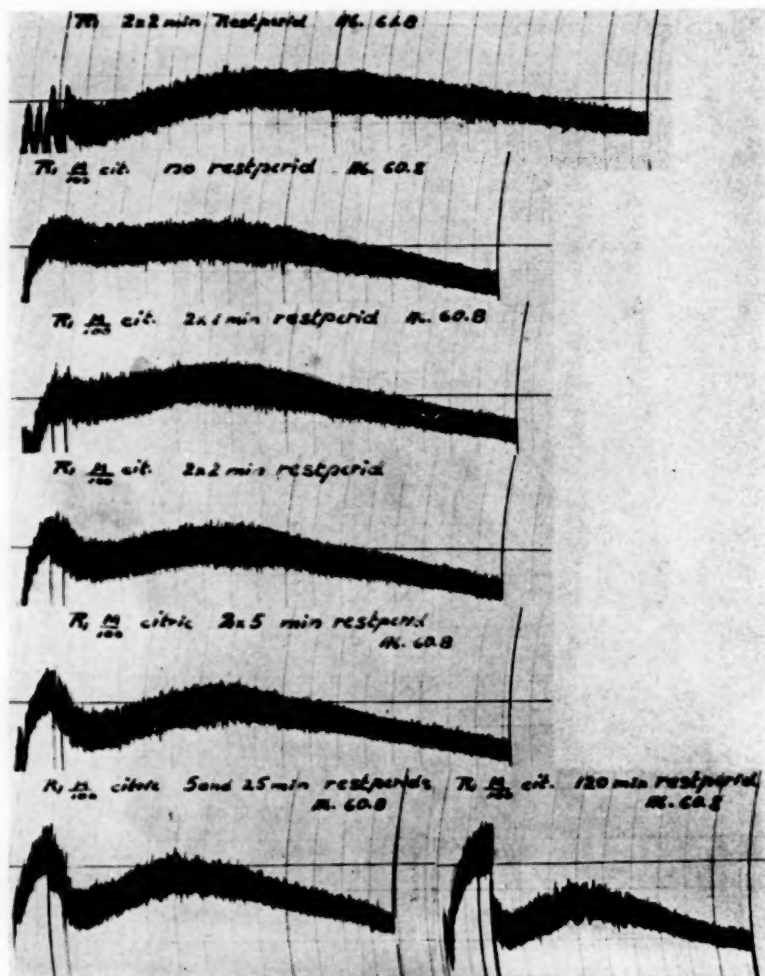 2x2 min Restperid M. 61.8
R, M/100 cit. no restperid M. 60.8
R, M/100 cit. 2x1 min restperid M. 60.8
R, M/100 cit. 2x2 min restperid
R, M/100 citric 2x5 min restperid
M. 60.8
R, M/100 citric 5 and 25 min restperids
M. 60.8
R, M/100 cit. 120 min restperid
M. 60.8